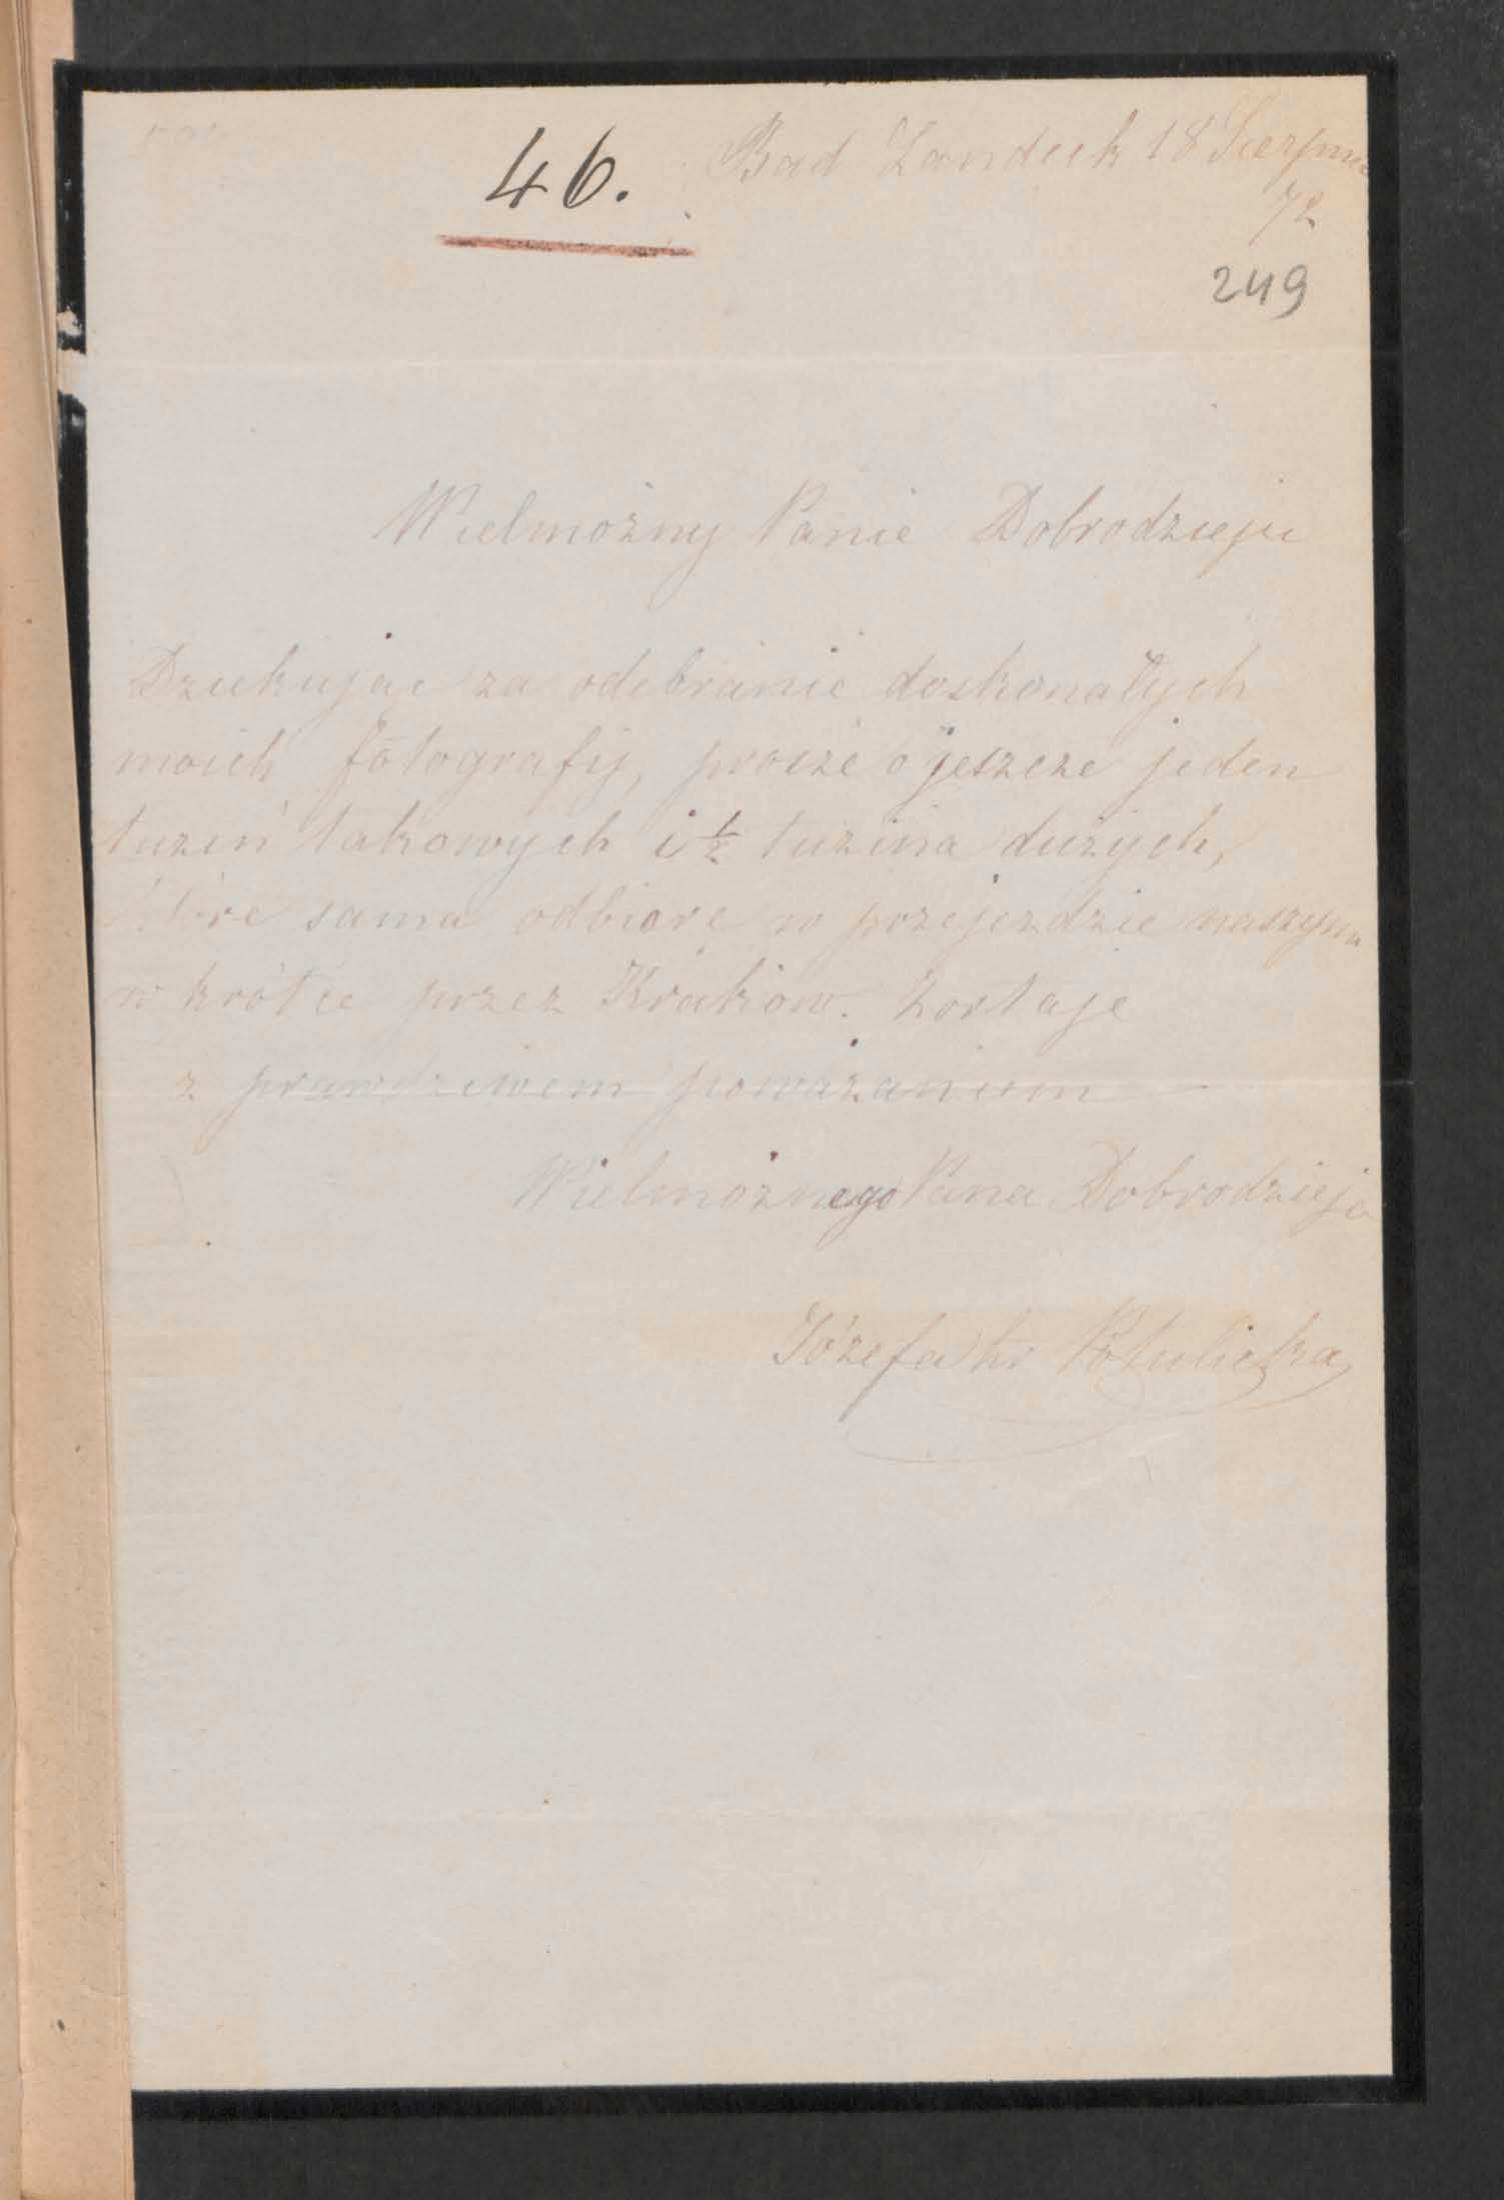 46.
Bad Landeck 18 Sierpnia
72
249
Wielmożny Panie Dobrodzieju
Dziekując za odebranie doskonałych
moich fotografij, proszę o jeszcze jeden
tuzin takowych i 1/2 tuzina dużych,
które sama odbiorę w przejezdzie naszym
w krótce przez Kraków. Zostaję
z prawdziwem poważaniem
Wielmożnego Pana Dobrodzieja
Józefa hr Potulicka